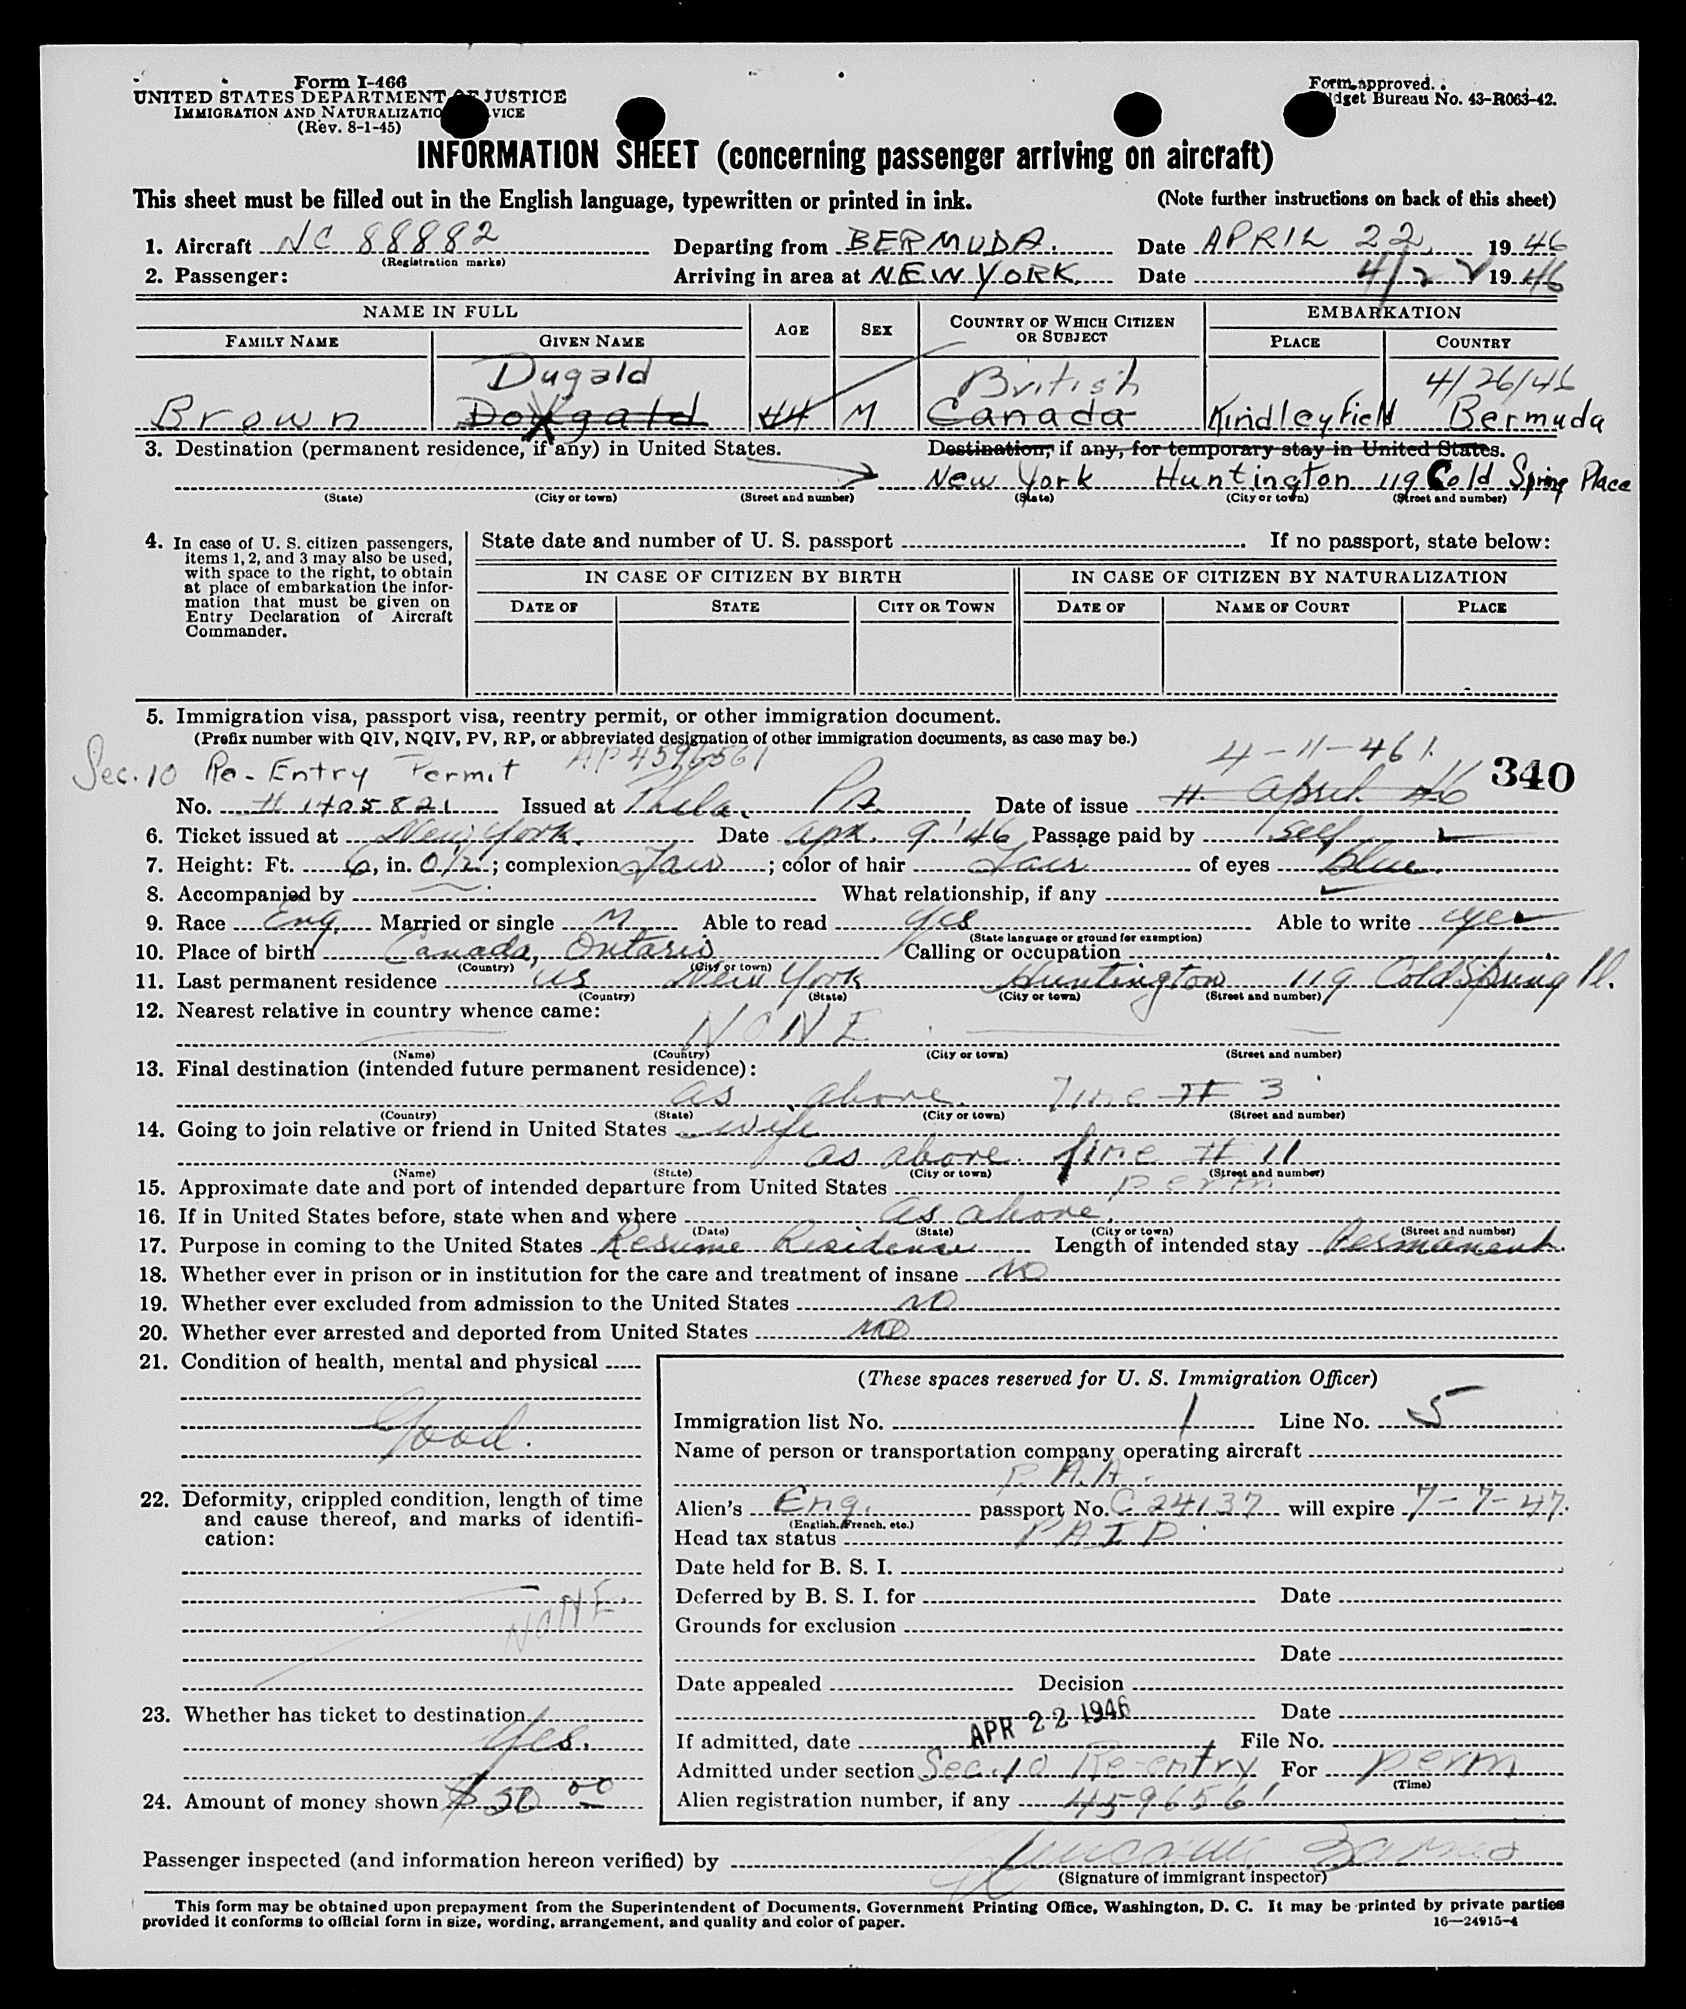 Form I-466
UNITED STATES DEPARTMENT OF JUSTICE
IMMIGRATION AND NATURALIZATION SERVICE
(Rev. 8-1-45)
Form approved.
Budget Bureau No. 43-R063-42.
INFORMATION SHEET (concerning passenger arriving on aircraft)
This sheet must be filled out in the English language, typewritten or printed in ink. (Note further instructions on back of this sheet)
1. Aircraft NC 88882 Departing from BERMUDA. Date APRIL 22, 1946
(Registration marks)
2. Passenger: Arriving in area at NEW YORK. Date 4/22 1946
NAME IN FULL AGE SEX COUNTRY OF WHICH CITIZEN OR SUBJECT EMBARKATION
FAMILY NAME GIVEN NAME PLACE COUNTRY
Dugald British 4/26/46
Brown 44 M Canada Kindley Field Bermuda
3. Destination (permanent residence, if any) in United States. Destination, if any, for temporary stay in United States.
New York Huntington 119 Cold Spring Place
(State) (City or town) (Street and number) (State) (City or town) (Street and number)
4. In case of U. S. citizen passengers, items 1, 2, and 3 may also be used, with space to the right, to obtain at place of embarkation the information that must be given on Entry Declaration of Aircraft Commander.
State date and number of U. S. passport If no passport, state below:
IN CASE OF CITIZEN BY BIRTH IN CASE OF CITIZEN BY NATURALIZATION
DATE OF STATE CITY OR TOWN DATE OF NAME OF COURT PLACE
5. Immigration visa, passport visa, reentry permit, or other immigration document.
(Prefix number with QIV, NQIV, PV, RP, or abbreviated designation of other immigration documents, as case may be.)
Sec. 10 Re-Entry Permit AP4596561 4-11-46 340
No. # 1405821 Issued at Phila. Pa. Date of issue 11 April 46
6. Ticket issued at New York. Date Apr. 9 '46 Passage paid by self
7. Height: Ft. 6, in. 0 1/2; complexion Fair; color of hair Fair of eyes Blue.
8. Accompanied by What relationship, if any
9. Race Eng. Married or single M Able to read yes Able to write yes
(State language or ground for exemption)
10. Place of birth Canada, Ontario Calling or occupation
(Country) (City or town)
11. Last permanent residence US New York Huntington 119 Cold Spring Pl.
(Country) (State) (City or town) (Street and number)
12. Nearest relative in country whence came:
NONE
(Name) (Country) (City or town) (Street and number)
13. Final destination (intended future permanent residence):
as above. line # 3
(Country) (State) (City or town) (Street and number)
14. Going to join relative or friend in United States wife
as above. line # 11
(Name) (State) (City or town) (Street and number)
15. Approximate date and port of intended departure from United States perm
16. If in United States before, state when and where as above.
(Date) (State) (City or town) (Street and number)
17. Purpose in coming to the United States Resume Residence Length of intended stay Permanent.
18. Whether ever in prison or in institution for the care and treatment of insane NO
19. Whether ever excluded from admission to the United States NO
20. Whether ever arrested and deported from United States NO
21. Condition of health, mental and physical
Good.
22. Deformity, crippled condition, length of time and cause thereof, and marks of identification:
NONE.
23. Whether has ticket to destination
Yes.
24. Amount of money shown $ 50 00
(These spaces reserved for U. S. Immigration Officer)
Immigration list No. 1 Line No. 5
Name of person or transportation company operating aircraft
P.A.A.
Alien's Eng. passport No. C 24137 will expire 7-7-47.
(English, French, etc.)
Head tax status PAID
Date held for B. S. I.
Deferred by B. S. I. for Date
Grounds for exclusion
Date
Date appealed Decision
Date
If admitted, date APR 22 1946 File No.
Admitted under section Sec. 10 Re-entry For perm
(Time)
Alien registration number, if any 4596561
Passenger inspected (and information hereon verified) by
(Signature of immigrant inspector)
This form may be obtained upon prepayment from the Superintendent of Documents, Government Printing Office, Washington, D. C. It may be printed by private parties
provided it conforms to official form in size, wording, arrangement, and quality and color of paper. 16—24915-4